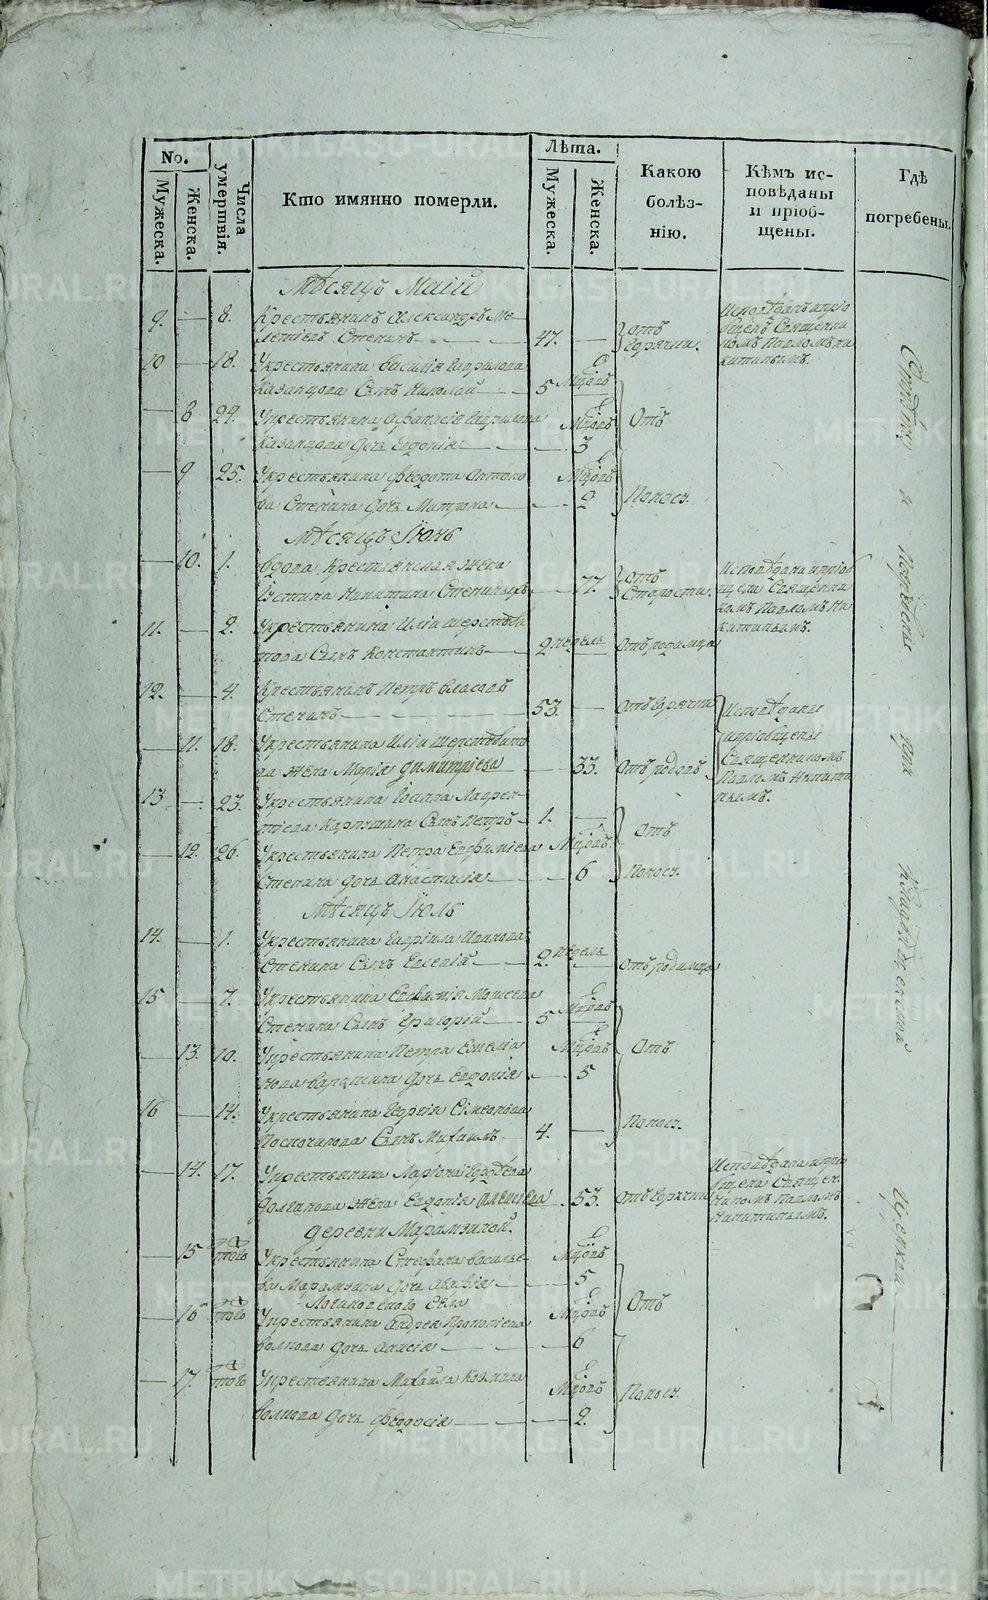 No.
Мужеска.
Женска.
Числа умертвія.
Кто имянно померли.
Лѣта.
Мужеска.
Женска.
Какою
болѣз-
нію.
Кѣмъ ис-
повѣданы
и пріоб-
щены.
Гдѣ
погребены.
Мѣсяцъ Маій
9. — 8. Крестьянинъ Александръ Ме-
летіевъ Стенинъ — 47. — отъ горячки. Исповѣданъ и пріоб-
щенъ Священни
комъ Павломъ Ни
китинымъ.
10 — 18. У крестьянина Василія Гаврилова
Казанцова Сынъ Николай — 5 Мцовъ
— 8 24. У крестьянина Афанасія Гаврилова
Казанцова Дочь Евдокія — Мцовъ 3 Отъ
— 9 25. У крестьянина Федота Антоно
ва Стенина Дочь Матрона — Мцовъ 2 Поноса.
Мѣсяцъ Іюнь
— 10. 1. Вдова крестьянская жена
Устина Никитина Стениныхъ — 77. отъ Старости. Исповѣдана и пріоб
щена Священни
комъ Павломъ Ни
китинымъ.
11. — 2. У крестьянина Иліи Шерстоби
това Сынъ Константинъ — 2 недель Отъ родимца
12. — 4. Крестьянинъ Петръ Власовъ
Стенинъ — 53. — отъ горячки Исповѣданы
— 11. 18. У крестьянина Иліи Шерстобито
ва жена Марія Димитріева — 33. Отъ родовъ
и пріобщены
Священникомъ
Павломъ Никити
нымъ.
13. — 23. У крестьянина Іоанна Лаврен-
тіева Карпушина Сынъ Петръ — 1. — Отъ
— 12. 26. У крестьянина Петра Евфиміева
Стенина дочь Анастасія — Мцовъ 6 Поноса.
Мѣсяцъ Іюль
14. — 1. У крестьянина Гавріила Иванова
Стенина Сынъ Евсевій — 2. недель — отъ родимца
15 — 7. У крестьянина Евфимія Моисеева
Стенина Сынъ Григорій — 5 Мцовъ
— 13. 10. У крестьянина Петра Емелія
нова Варакина Дочь Евдокія — Мцовъ 5 Отъ
16 — 14. У крестьянина Георгія Симеонова
Посмокинова Сынъ Михаилъ — 4. — Поноса.
— 14. 17. У крестьянина Ларіона Гордѣева
Долганова Жена Евдокія Алексіева — 53. отъ горячки Исповѣдана и прі
общена Священ
никомъ Павломъ
Никитинымъ.
Деревни Марамзиной.
— 15 того У крестьянина Стефана Василье-
ва Марамзина Дочь — Мцовъ 5
Логиновского Села
— 16 того У крестьянина Андрея Прокопіева
Волкова Дочь Анисія — Мцовъ 6 Отъ
— 17. того У крестьянина Михаила Козмина
Волкова Дочь Феодосія — Мцовъ 2. Поноса.
Отпѣты и Погребены при Кладбищенской Церкви